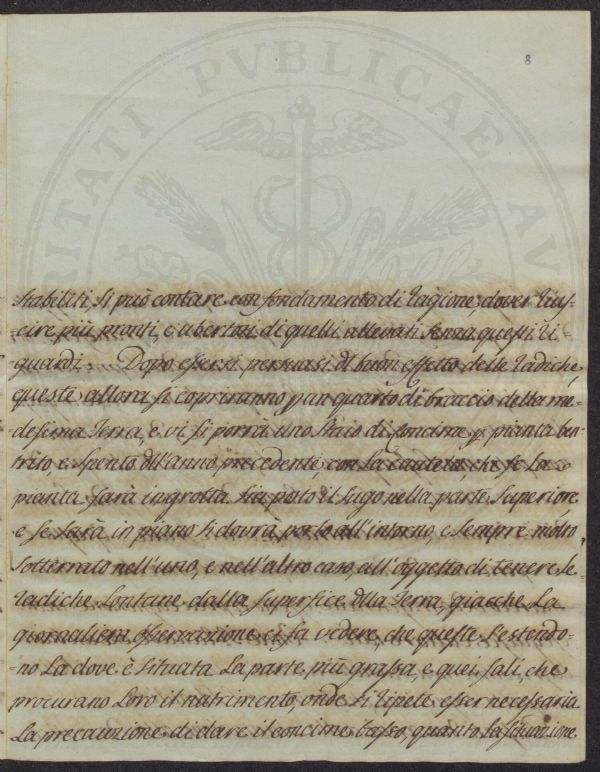 8
stabiliti si può contare con fondamento di ragione, dover rius=
=cire più pronti, e ubertosi di quelli allevati senza questi ri=
=guardi. Dopo essersi persuasi dl buon effetto delle radiche,
queste allora si copriranno p un quarto di braccio della me=
=desima Terra, e vi si porrà uno staio di concime p pianta ben
trito, e spento dll'anno precedente, con la cautela, che se la
pianta sarà in grotta sia posto il sugo nella parte superiore
e se sarà in piano si dovrà porlo all'intorno, e sempre molto
sotterrato nell'uno, e nell'altro caso, all'oggetto di tenere le
radiche lontane dalla superfice dlla Terra, giacche la
giornaliera osservazione ci fa vedere, che queste s'estendo=
=no la dove è situata la parte più grassa, e quei sali, che
procurano loro il nutrimento, onde si ripete esser necessaria
la precauzione di dare il concime basso, quanto la situazione
PVBLICAE